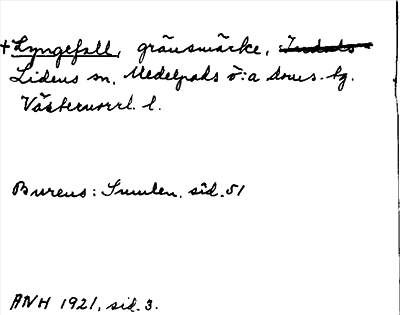 + Lyngefall, gränsmärke,
Lidens sn, Medelpads ö:a doms. hg.
Västernorrl. l.
Bureus: Sumlen, sid. 51
ANH 1921, sid. 3.